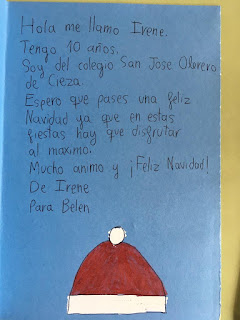 Hola me llamo Irene.
Tengo 10 años.
Soy del colegio San Jose Obrero
de Cieza.
Espero que pases una feliz
Navidad ya que en estas
fiestas hay que disfrutar
al maximo.
Mucho animo y ¡Feliz Navidad!
De Irene
Para Belen